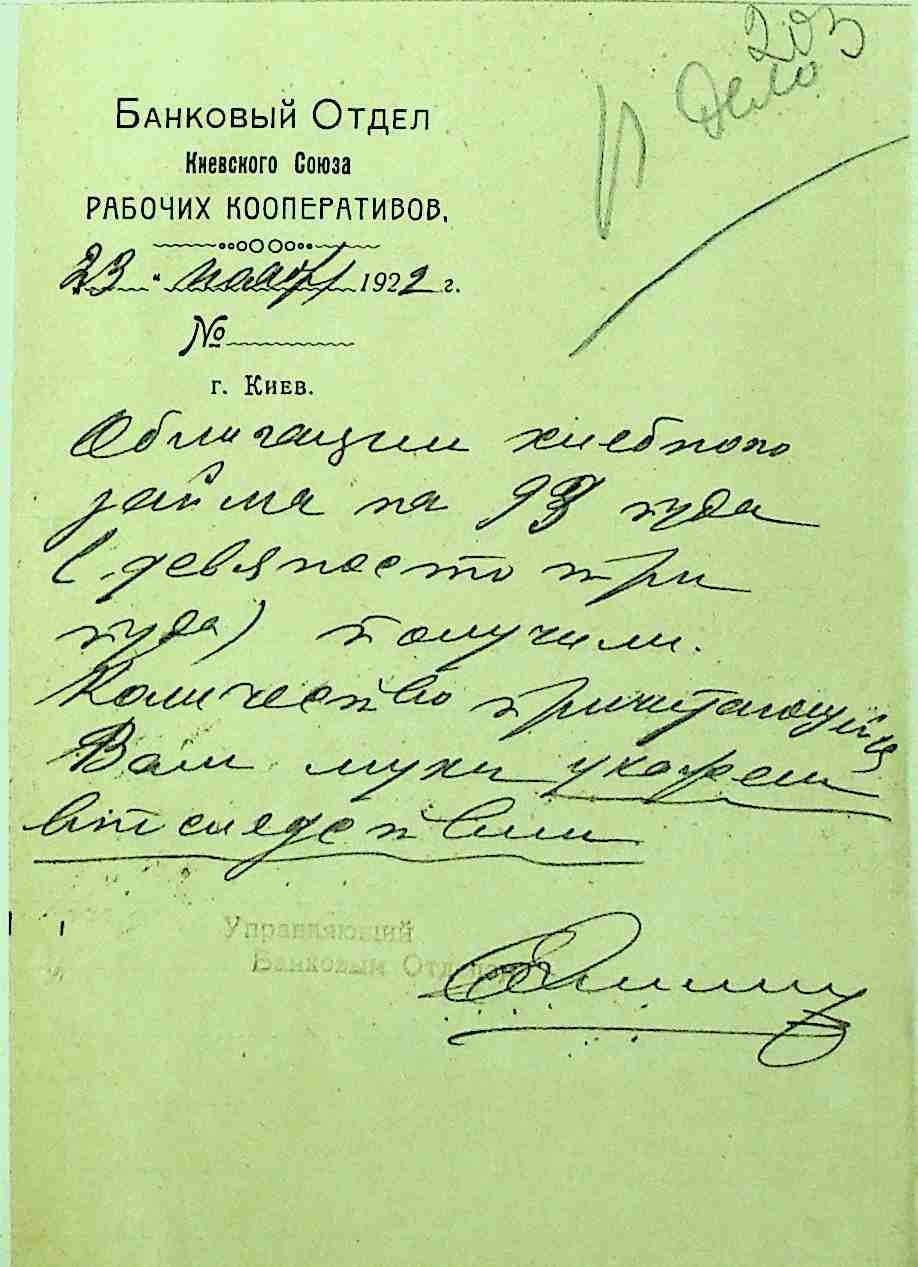 203
К делу
Банковый Отдел
Киевского Союза
РАБОЧИХ КООПЕРАТИВОВ.
23 " ноября 1922 г.
№
г. Киев.
Облигации хлебного
займа на 93 пуда
(девяносто три
пуда) получили.
Количество причитающейся
Вам муки укажем
впоследствии
Управляющий
Банковым Отделом